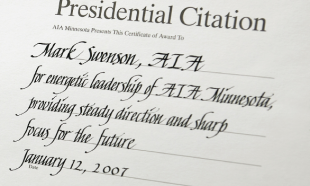 Presidential Citation
AIA Minnesota Presents This Certificate of Award To
Mark Swenson, AIA
for energetic leadership of AIA Minnesota,
providing steady direction and sharp
focus for the future
January 12, 2007
Date